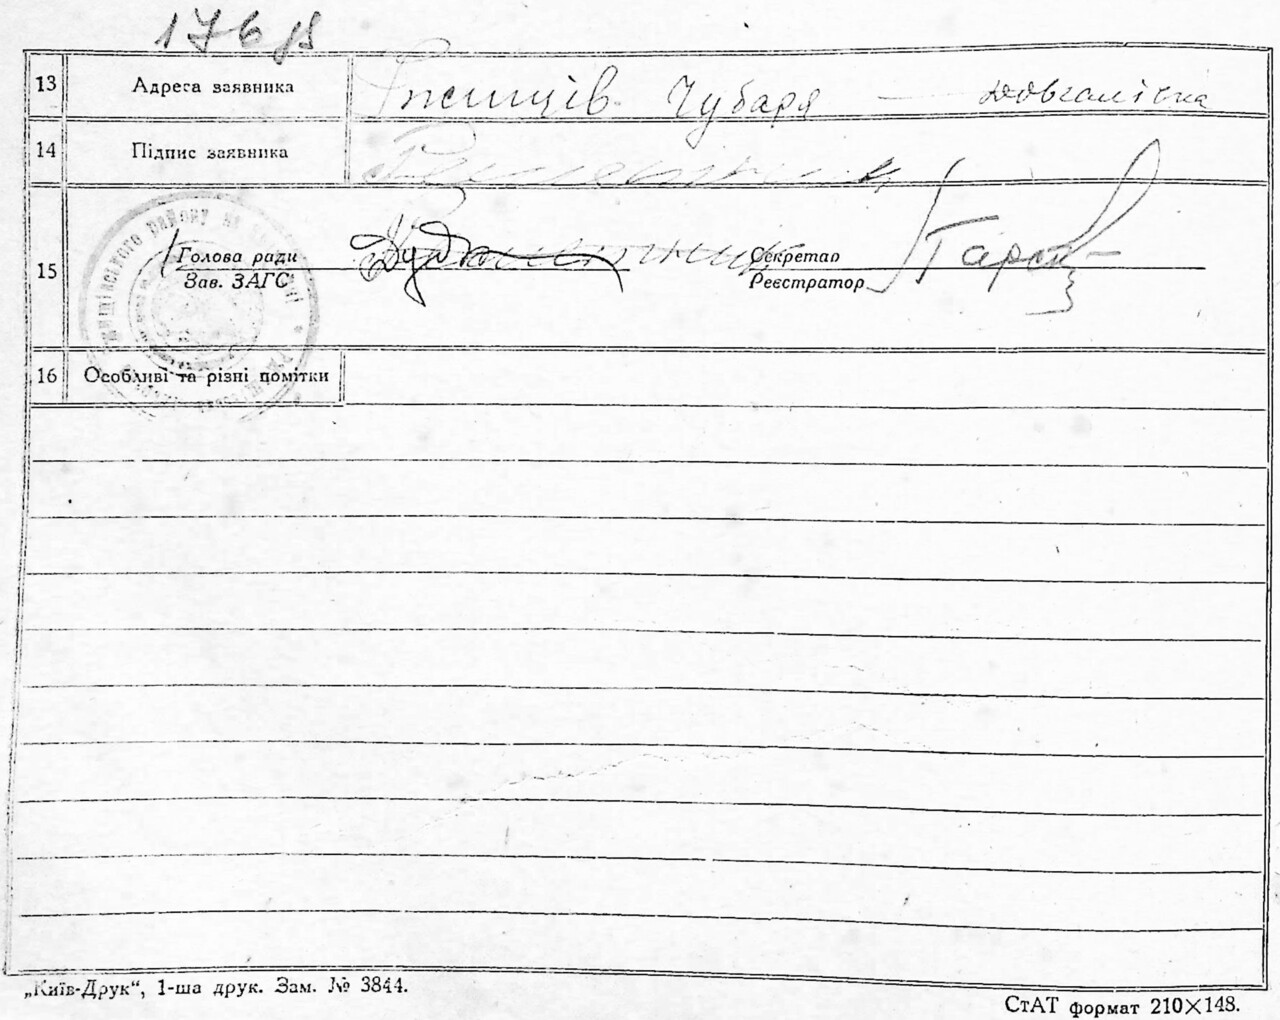 176 зв
13 Адреса заявника Ржищів Чубаря — Довгалівка
14 Підпис заявника
15 Голова ради Дудка Секретар
Зав. ЗАГС Реєстратор
16 Особливі та різні помітки
„Київ-Друк“, 1-ша друк. Зам. № 3844.
СтАТ формат 210×148.